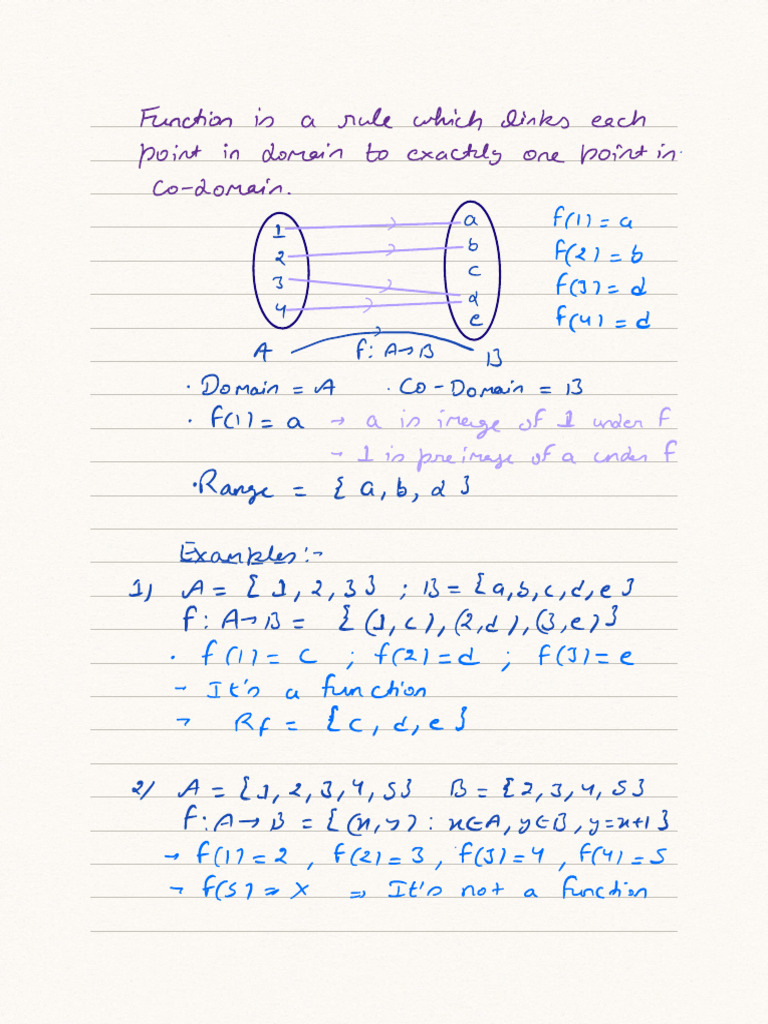 Function is a rule which links each
point in domain to exactly one point in
co-domain.
1 a f(1) = a
2 b f(2) = b
3 c f(3) = d
4 d f(4) = d
e
A f: A→B B
· Domain = A · Co-Domain = B
· f(1) = a → a is image of 1 under f
→ 1 is preimage of a under f
· Range = { a, b, d }
Examples :-
1) A = { 1, 2, 3 } ; B = { a, b, c, d, e }
f : A→B = { (1, c), (2, d), (3, e) }
· f(1) = c ; f(2) = d ; f(3) = e
→ It's a function
→ Rf = { c, d, e }
2) A = {1, 2, 3, 4, 5} B = {2, 3, 4, 5}
f: A→B = { (x, y) : x∈A, y∈B, y=x+1 }
→ f(1) = 2 , f(2) = 3 , f(3) = 4 , f(4) = 5
→ f(5) = X ⇒ It's not a function